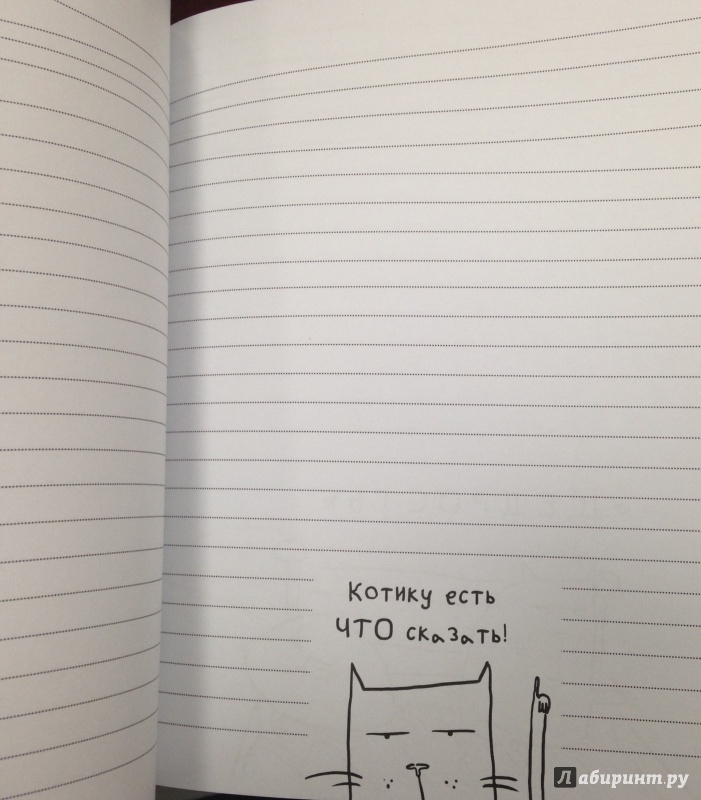 Котику есть
ЧТО сказать!
Лабиринт.ру